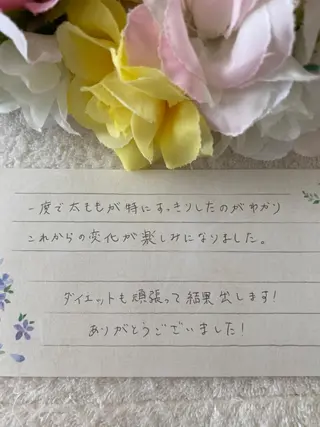 一度で太ももが特にすっきりしたのがわかり
これからの変化が楽しみになりました。
ダイエットも頑張って結果出します!
ありがとうございました!